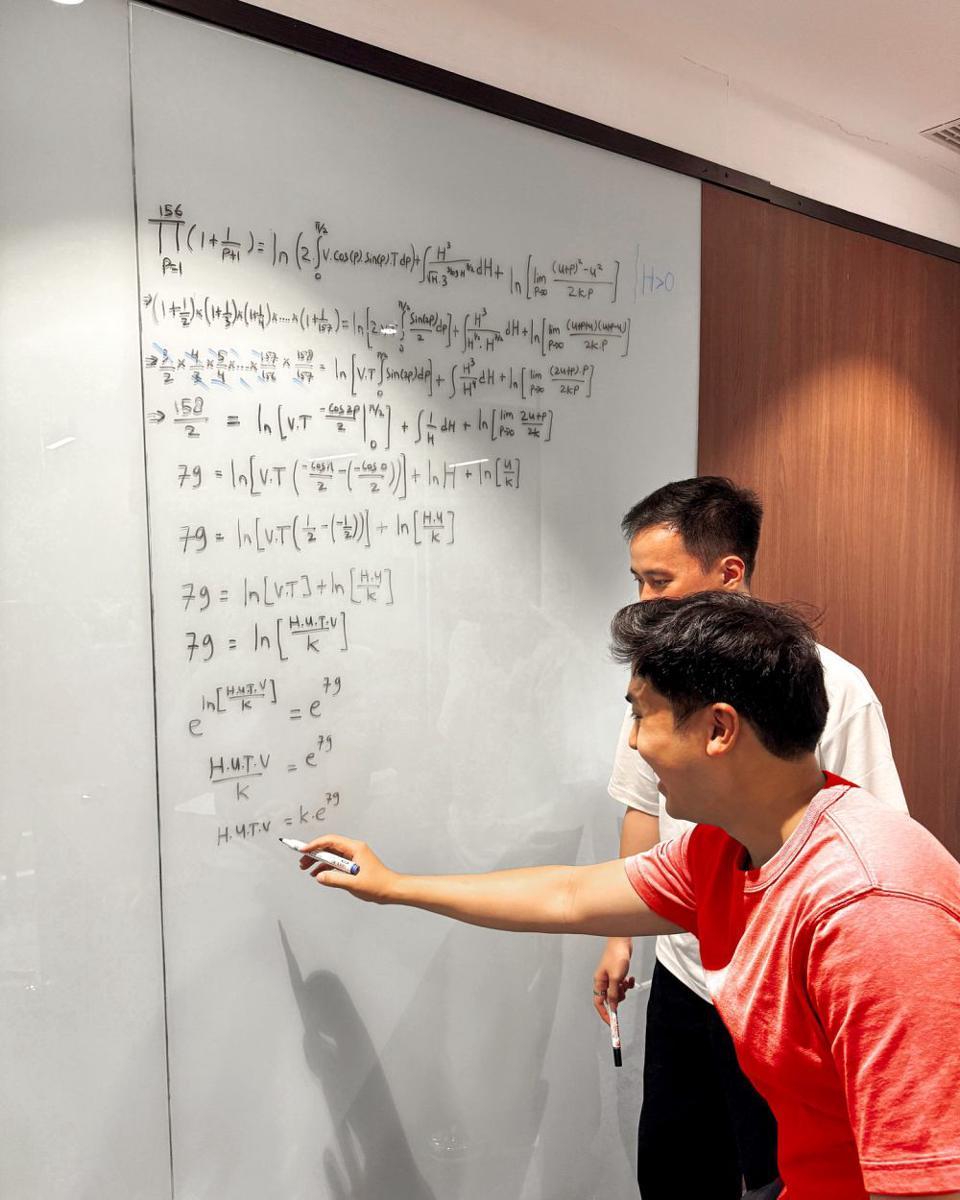 ∏_{p=1}^{156} (1 + 1/(p+1)) = ln(2.∫_0^{π/2} V.cos(p).sin(p).T dp) + ∫ H^3/ dH + ln[lim_{p→0} ((u+p)^2 - u^2)/(2kp)] | H>0
⇒ (1+1/2)×(1+1/3)×(1+1/4)×....×(1+1/157) = ln[2 ∫_0^{π/2} sin(2p)/2 dp] + ∫ H^3/ dH + ln[lim_{p→0} ((u+p+u)(u+p-u))/(2k.p)]
⇒ 3/2 × 4/3 × 5/4 × ... × 157/156 × 158/157 = ln[V.T ∫_0^{π/2} sin(2p) dp] + ∫ H^3/H^4 dH + ln[lim_{p→0} ((2u+p).p)/(2kp)]
⇒ 158/2 = ln[V.T -cos2p/2 |_0^{π/2}] + ∫ 1/H dH + ln[lim_{p→0} (2u+p)/(2k)]
79 = ln[V.T (-cosπ/2 - (-cos0/2))] + ln H + ln[u/k]
79 = ln[V.T(1/2 - (-1/2))] + ln[H.u/k]
79 = ln[V.T] + ln[H.u/k]
79 = ln[H.u.T.V/k]
e^{ln[H.u.T.V/k]} = e^{79}
H.u.T.V/k = e^{79}
H.u.T.V = k.e^{79}